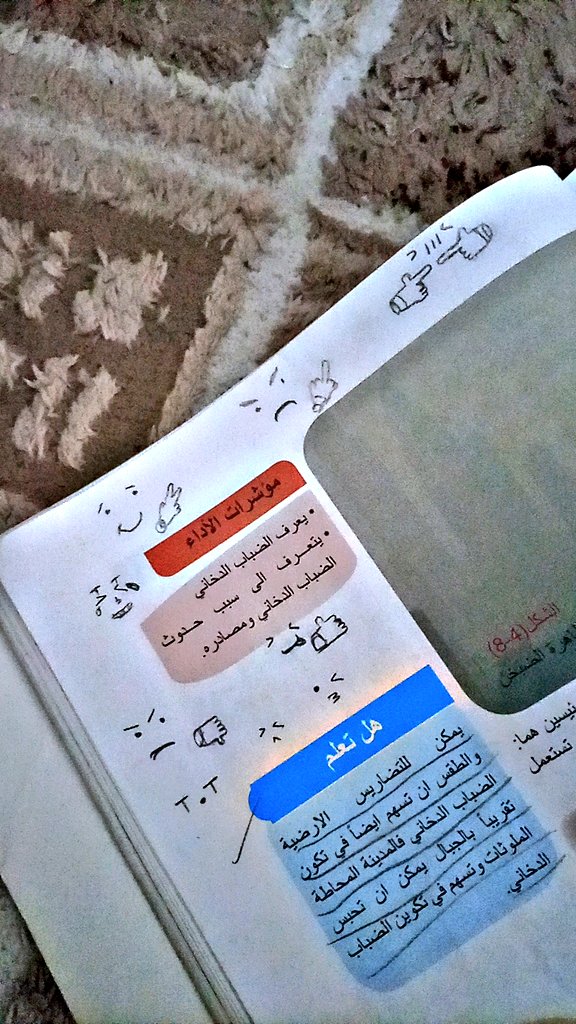 مؤشرات الأداء
• يعرف الضباب الدخاني
• يتعرف الى سبب حدوث
الضباب الدخاني ومصادره.
هل تعلم
يمكن للتضاريس الارضية
والطقس ان تسهم ايضاً في تكون
الضباب الدخاني فالمدينة المحاطة
تقريباً بالجبال يمكن ان تحبس
الملوثات وتسهم في تكوين الضباب
الدخاني.
الشكل (4-8)
الضبخن
ئيسين هما:
تستعمل
T.T